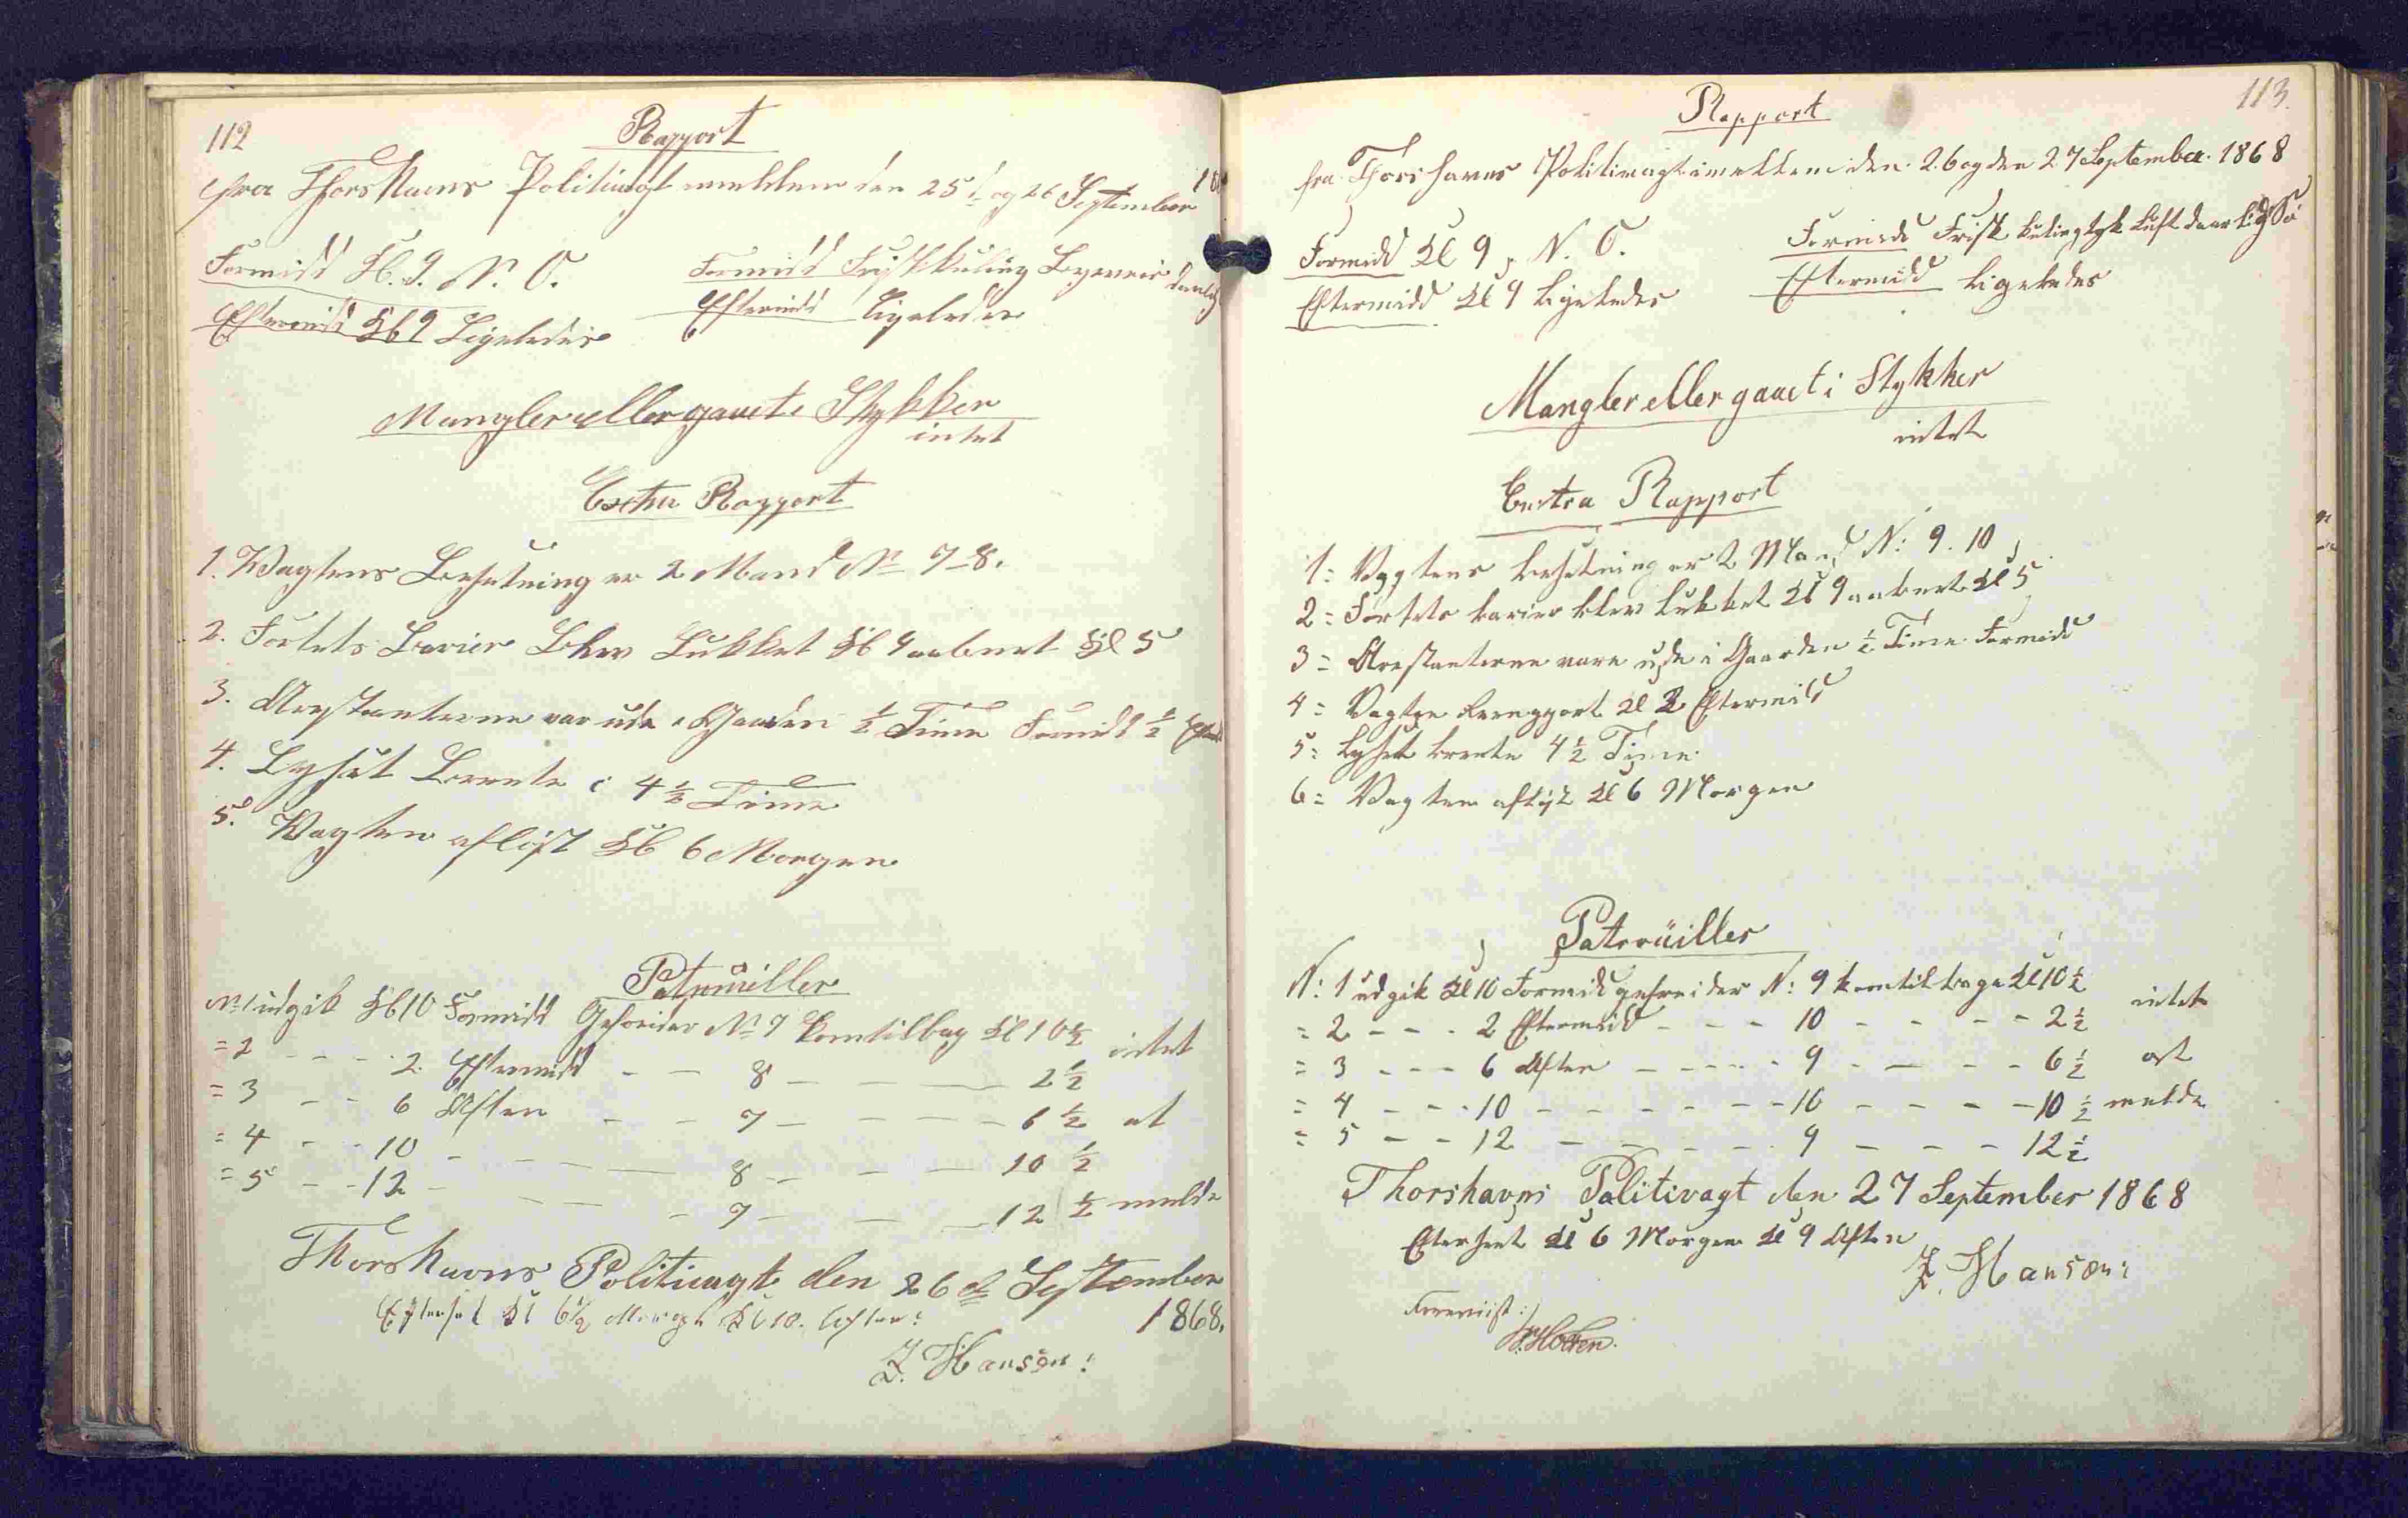 112
Rapport
fra Thorshavns Politivagt imellem den 25d og 26 September
Formidd Kl. 9. N. O.
Formidd Frisk Kuling
Eftermidd Kl 9 Ligeledes
Eftermidd ligeledes
Mangler eller gaaet i Stykker
intet
Extra Rapport
1. Vagtens Besetning er 2 Mand No 7-8.
2. Fortets Barier Blev Lukket Kl 9 aabnet Kl 5
3. Arestanterne var ude i Gaarden ½ Time Formidd ½
4. Lyset Brente i 4½ Time
5. Vagten afløst Kl 6 Morgen
Patruiller
No 1 udgik Kl 10 Formidd Gefreider No 7 kom tilbag Kl 10½ intet
= 2 - - - 2. Eftermidd - - 8 - - 2½
= 3 - - 6 Aften - - 7 - - - 6½ at
= 4 - - 10 - - - - 8 - - - 10½
= 5 - - 12 - - - - 7 - - - 12½ melde
Thorshavns Politivagt den 26d September
1868.
Efterset Kl 6½ Morgen Kl 10. Aften:
Z. Hansen:
113.
Rapport
fra Thorshavns Politivagt imellem den 26 og den 27 September. 1868
Formidd Kl 9, N. O.
Formidd Frisk Kuling tyk Luft
Eftermidd Kl 9 ligeledes
Eftermidd ligeledes
Mangler eller gaaet i Stykker
intet
Extra Rapport
1= Vagtens besetning er 2 Mand N: 9. 10
2= Fortets barier blev lukket Kl 9 aabnet Kl 5
3= Arestanterne vare ude i Gaarden ½ Time Formidd
4= Vagten Kl 2 Eftermidd
5= Lyset brente 4½ Time
6= Vagten afløst Kl 6 Morgen
Patrouiller
N: 1 udgik Kl 10 Formidd gefreider N: 9 kom tilbage Kl 10½ intet
= 2 - - - 2 Eftermidd - - - 10 - - - - 2½
= 3 - - - 6 Aften - - - - 9 - - - - 6½ at
= 4 - - - 10 - - - - - - 10 - - - - 10½ melde
= 5 - - 12 - - - - - 9 - - - - 12½
Thorshavns Politivagt den 27 September 1868
Efterseet Kl 6 Morgen Kl 9 Aften
Z. Hansen:
Foreviist: